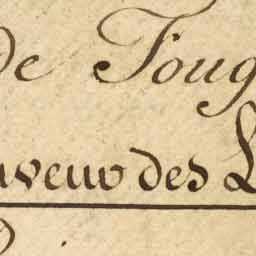 de Foug
aveur des L